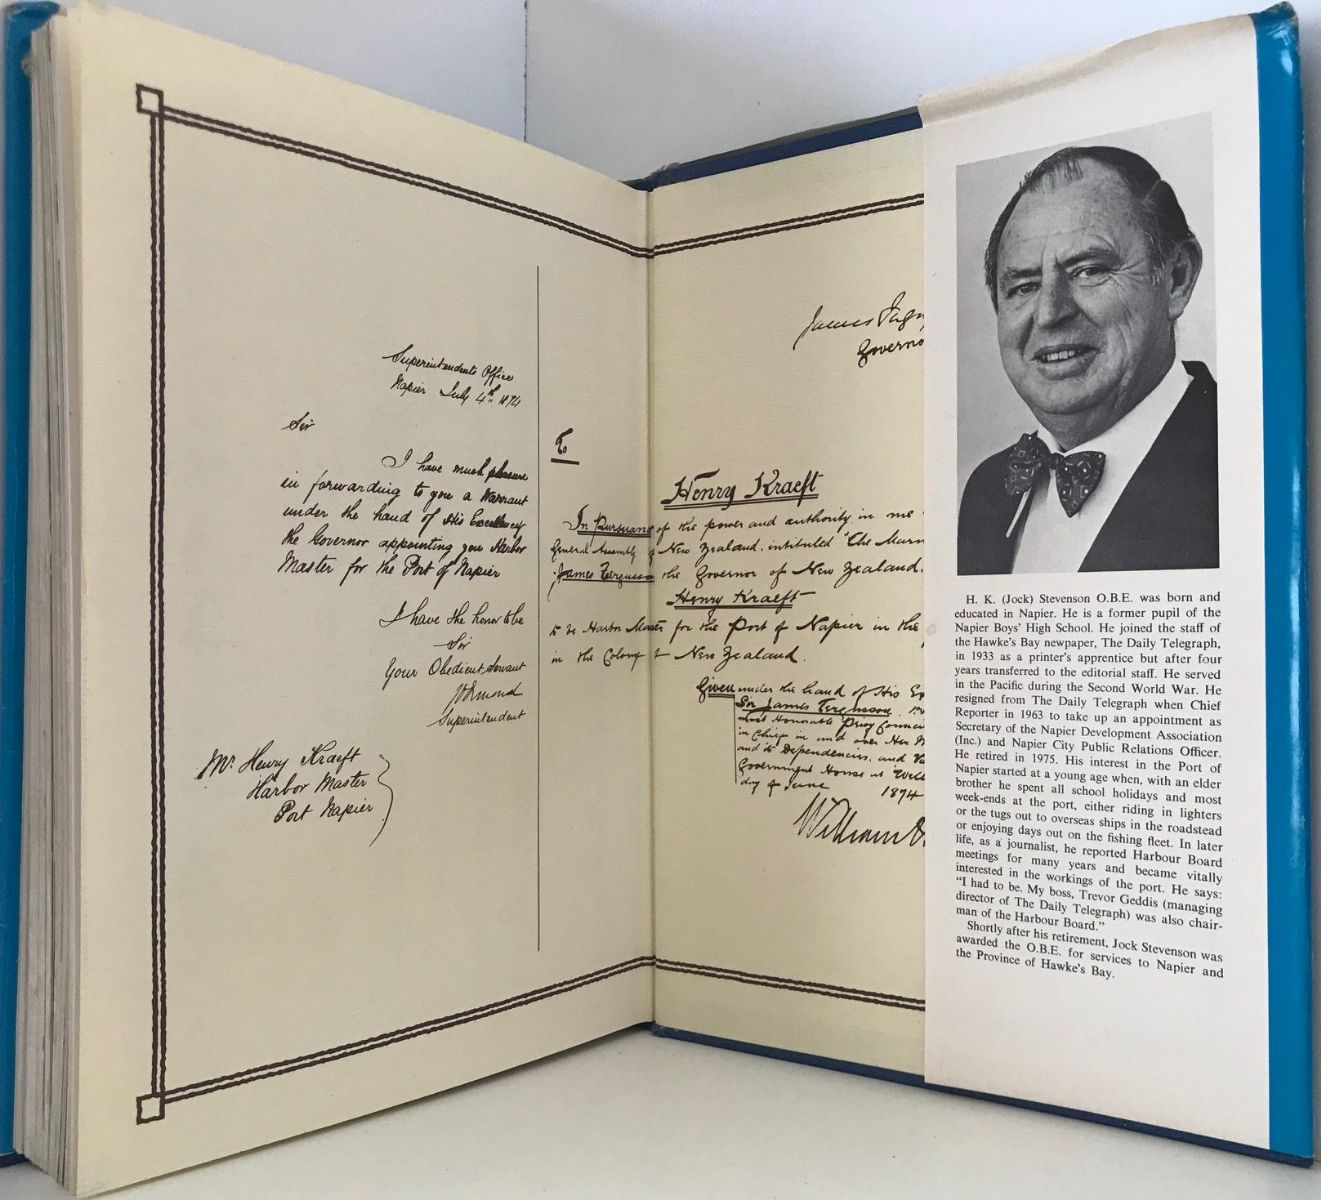 Superintendents Office
Napier July 4th 1874
Sir
I have much pleasure
in forwarding to you a Warrant
under the hand of His Excellency
the Governor appointing you Harbor
Master for the Port of Napier
I have the honor to be
Sir
Your Obedient Servant
JDOrmond
Superintendent
Mr Henry Kraeft
Harbor Master
Port Napier
James
Governo
To
Henry Kraeft
In Pursuance of the power and authority in me
General Assembly of New Zealand, intituled "The Marin
James Fergusson the Governor of New Zealand,
Henry Kraeft
to be Harbor Master for the Port of Napier in the
in the Colony of New Zealand.
Given under the hand of His Ex
Sir James Fergusson,
most Honourable Privy Counci
in Chief in and over Her M
and its Dependencies, and Vi
Government House at Well
day of June 1874
William
H. K. (Jock) Stevenson O.B.E. was born and
educated in Napier. He is a former pupil of the
Napier Boys' High School. He joined the staff of
the Hawke's Bay newspaper, The Daily Telegraph,
in 1933 as a printer's apprentice but after four
years transferred to the editorial staff. He served
in the Pacific during the Second World War. He
resigned from The Daily Telegraph when Chief
Reporter in 1963 to take up an appointment as
Secretary of the Napier Development Association
(Inc.) and Napier City Public Relations Officer.
He retired in 1975. His interest in the Port of
Napier started at a young age when, with an elder
brother he spent all school holidays and most
week-ends at the port, either riding in lighters
or the tugs out to overseas ships in the roadstead
or enjoying days out on the fishing fleet. In later
life, as a journalist, he reported Harbour Board
meetings for many years and became vitally
interested in the workings of the port. He says:
"I had to be. My boss, Trevor Geddis (managing
director of The Daily Telegraph) was also chair-
man of the Harbour Board."
Shortly after his retirement, Jock Stevenson was
awarded the O.B.E. for services to Napier and
the Province of Hawke's Bay.